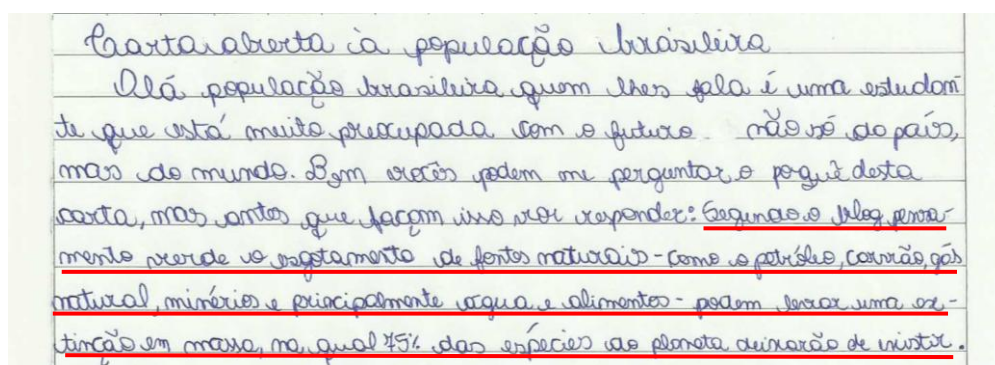 Carta aberta à população brasileira
Olá população brasileira quem lhes fala é uma estudan
te que está muito preocupada com o futuro não só do país,
mas do mundo. Bem vocês podem me perguntar o poquê desta
carta, mas antes que façam isso vor responder: Segundo o blog pensa-
mento verde o esgotamento de fontes naturais - como o petróleo, carvão, gás
natural, minérios e principalmente água e alimentos - podem levar uma ex-
tinção em massa, na qual 75% das espécies do planeta deixarão de existir.